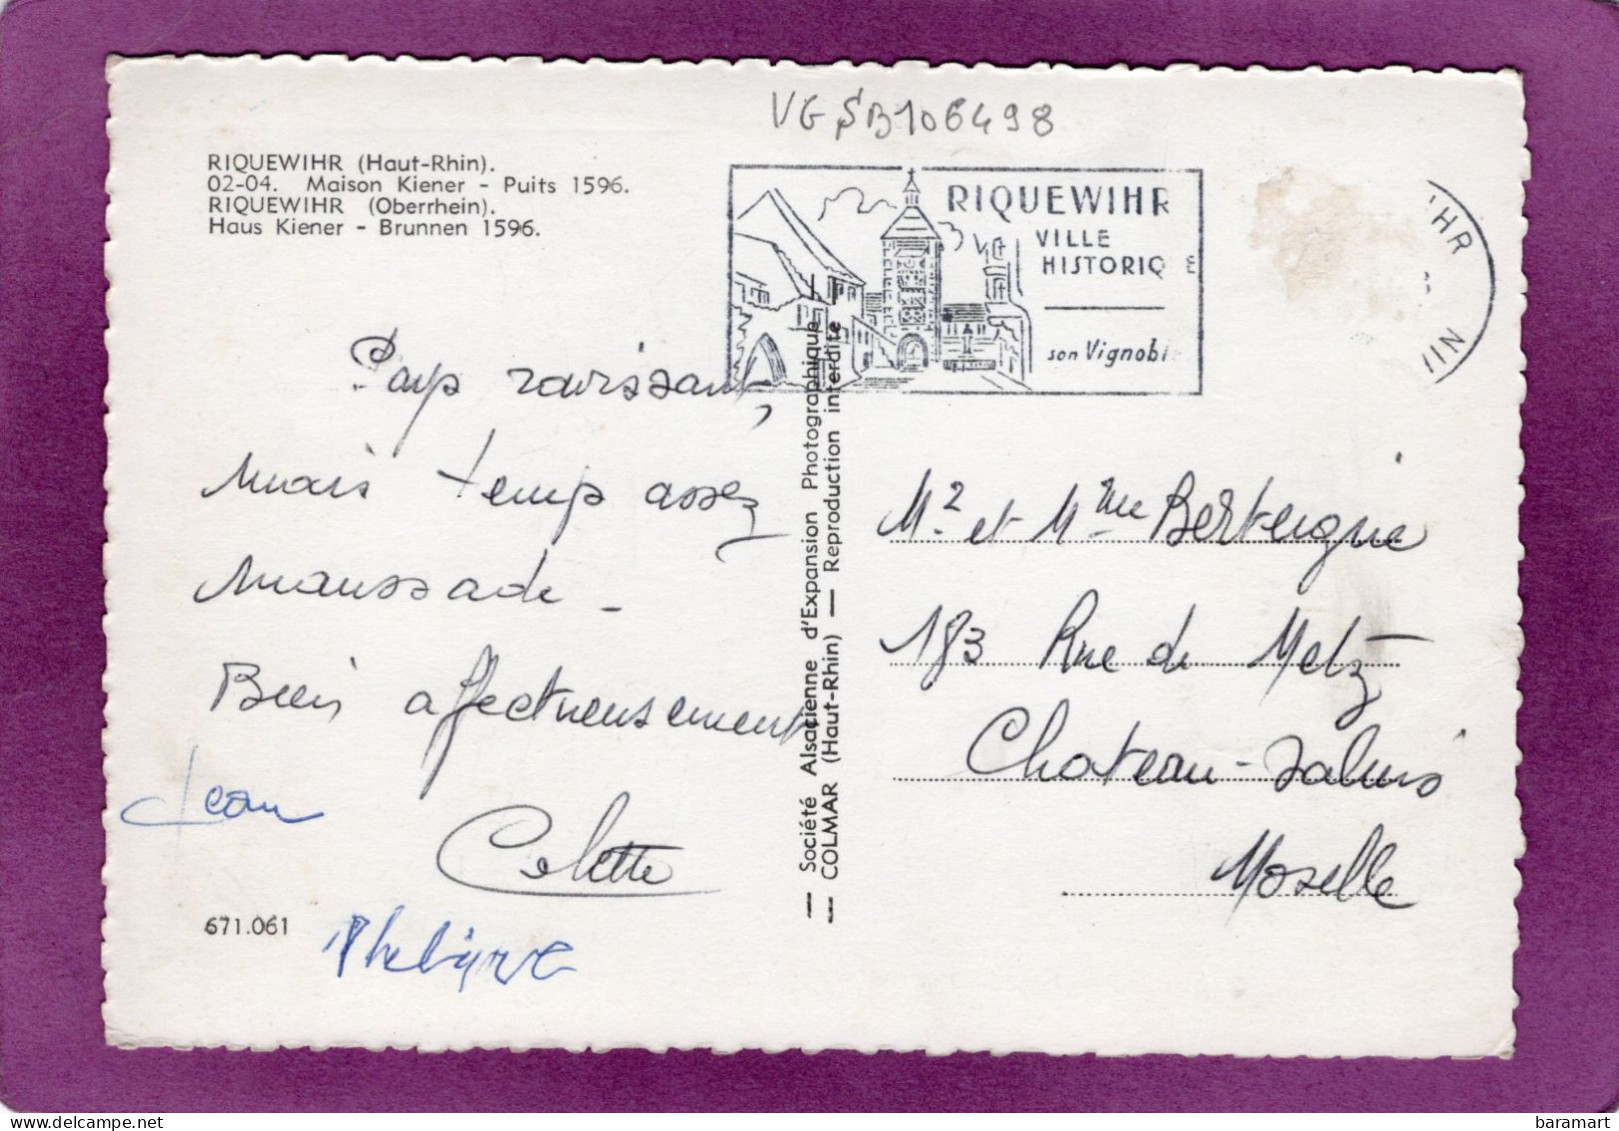 VGSB106498
RIQUEWIHR (Haut-Rhin).
02-04. Maison Kiener - Puits 1596.
RIQUEWIHR (Oberrhein).
Haus Kiener - Brunnen 1596.
RIQUEWIHR
VILLE
HISTORIQ E
son Vignobl
Pays ravissant,
mais temps assez
maussade -
Bien affectueusement
Jean
Colette
671.061
— Société Alsacienne d'Expansion Photographique —
— COLMAR (Haut-Rhin) — Reproduction interdite —
Mr et Mme
183 Rue de Metz
Château-Salins
Moselle
baramart